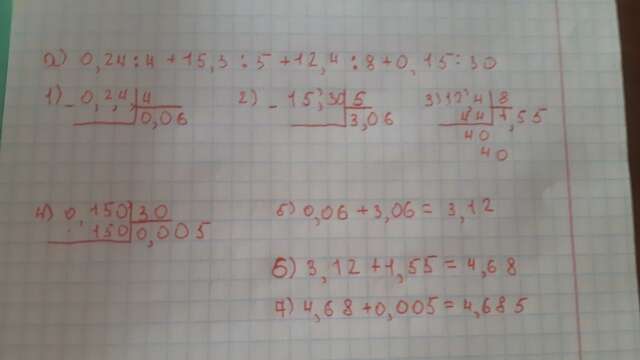 а) 0,24:4+15,3:5+12,4:8+0,15:30
1) 0,24 4
0,06
2) 15,30 5
3,06
3) 12,4 8
44 1,55
40
40
4) 0,150 30
150 0,005
5) 0,06+3,06=3,12
6) 3,12+1,55=4,68
7) 4,68+0,005=4,685